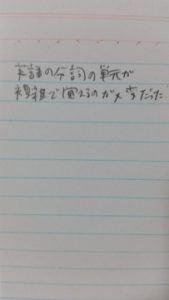 英語の分詞の単元が
複雑で覚えるのが大変だった